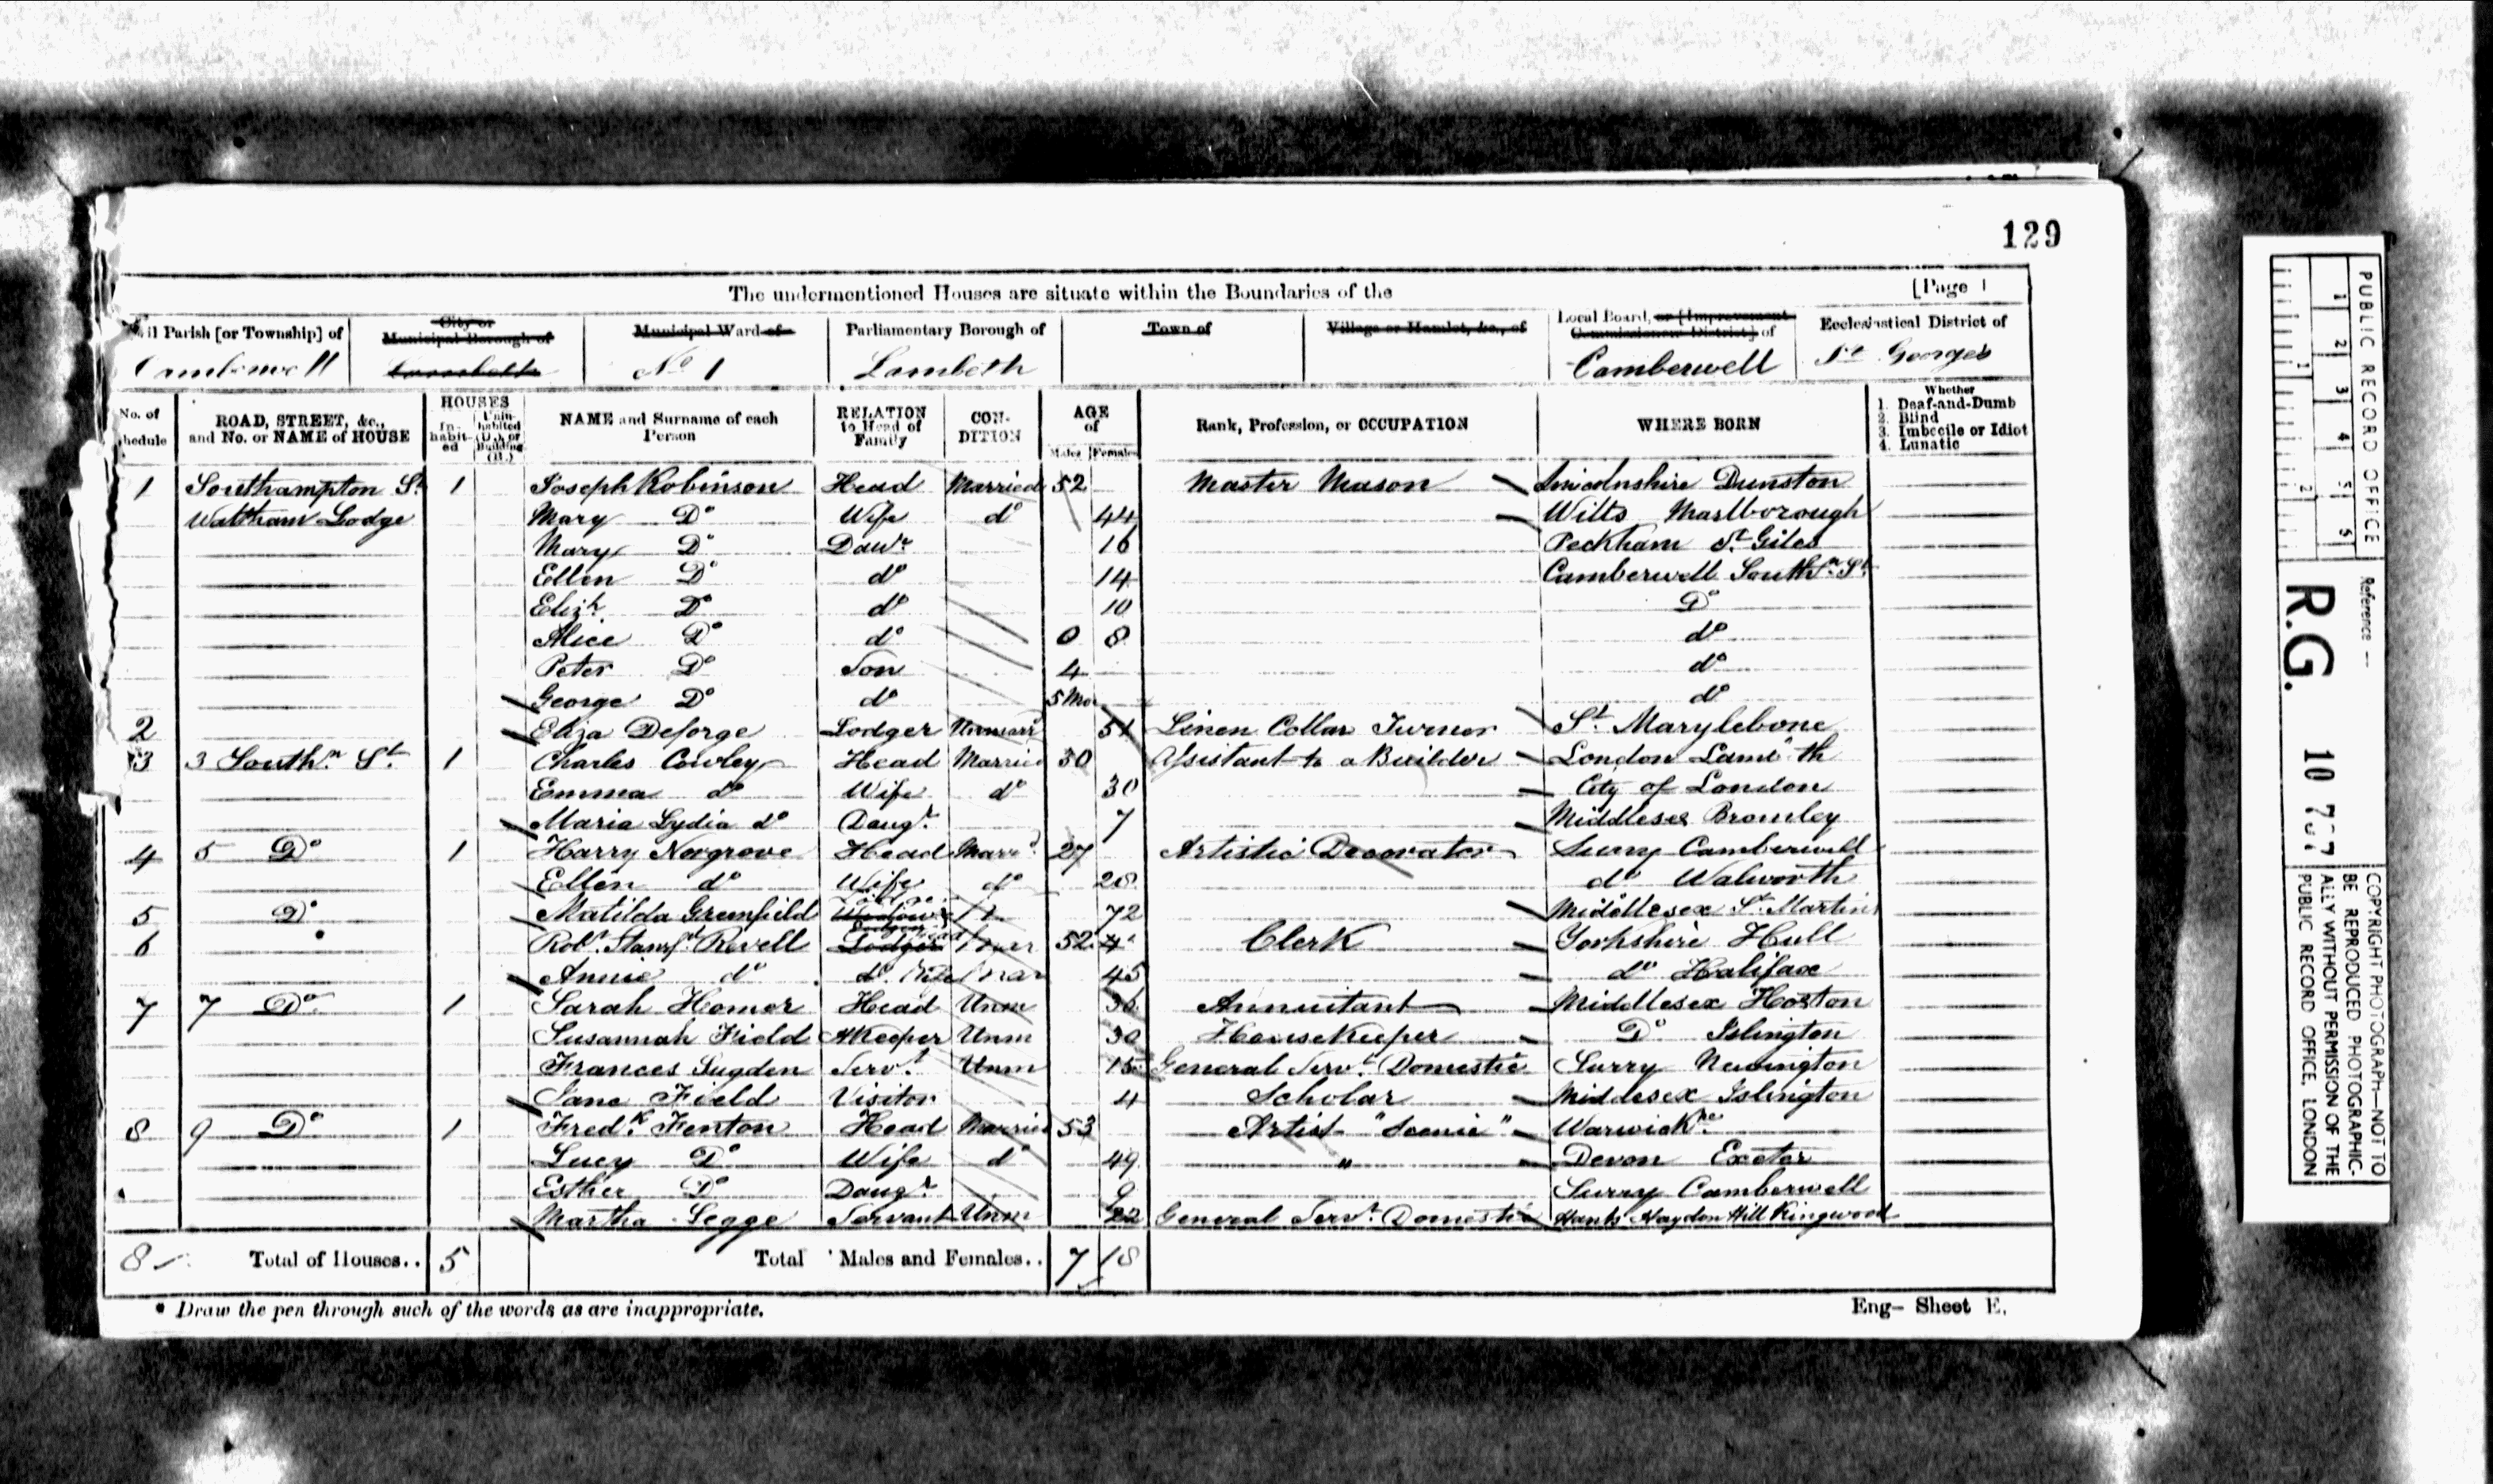 129
The undermentioned Houses are situate within the Boundaries of the
[Page 1
Parish [or Township] of
City or Municipal Borough of
Municipal Ward of
Parliamentary Borough of
Town of
Village or Hamlet, &c., of
Local Board, or [Improvement Commissioners District] of
Ecclesiastical District of
Camberwell
No 1
Lambeth
Camberwell
St Georges
No. of Schedule
ROAD, STREET, &c., and No. or NAME of HOUSE
HOUSES
In-habit-ed
Unin-habited (U.), or Building (B.)
NAME and Surname of each Person
RELATION to Head of Family
CON-DITION
AGE of
Males
Females
Rank, Profession, or OCCUPATION
WHERE BORN
Whether
1. Deaf-and-Dumb
2. Blind
3. Imbecile or Idiot
4. Lunatic
1 Southampton St 1 Joseph Robinson Head Married 52 Master Mason Lincolnshire Dunston
Waltham Lodge Mary Do Wife do 44 Wilts Marlborough
Mary Do Daur 16 Peckham St Giles
Ellen Do do 14 Camberwell Southn St
Elizh Do do 10 Do
Alice Do do 0 8 do
Peter Do Son 4 do
George Do do 5 Mo do
2 Eliza Deforge Lodger 51 Linen Collar Turner St Marylebone
3 3 Southn St 1 Charles Cowley Head Married 30 Assistant to a Builder London
Emma do Wife do 30 City of London
Maria Lydia do Daugr 7 Middlesex Bromley
4 5 Do 1 Harry Nosgrove Head Marrd 27 Artistic Decorator Surry Camberwell
Ellen do Wife do 28 do Walworth
5 Do Matilda Greenfield 72 Middlesex St Martins
6 Robt Stamfd Revell Lodger 52 Clerk Yorkshire Hull
Annie do do Wife Mar 45 do Halifax
7 7 Do 1 Sarah Homer Head Unm Annuitant Middlesex Hoxton
Susannah Field HKeeper Unm 30 HouseKeeper Do Islington
Frances Sugden Servt Unm 15 General Servt Domestic Surry Newington
Jane Field Visitor 4 Scholar Middlesex Islington
8 9 Do 1 Fredk Fenton Head Married 53 Artist "Scenic" Warwick
Lucy Do Wife do 49 " Devon Exeter
Esther Do Daugr 9 Surry Camberwell
Martha Legge Servant Unm 22 General Servt Domestic Hants Haydon Hill Kingwood
8 Total of Houses.. 5 Total Males and Females.. 7 18
* Draw the pen through such of the words as are inappropriate.
Eng— Sheet E.
PUBLIC RECORD OFFICE
1 2 3 4 5
1 2
Reference —
R.G. 10
COPYRIGHT PHOTOGRAPH—NOT TO
BE REPRODUCED PHOTOGRAPHIC-
ALLY WITHOUT PERMISSION OF THE
PUBLIC RECORD OFFICE, LONDON